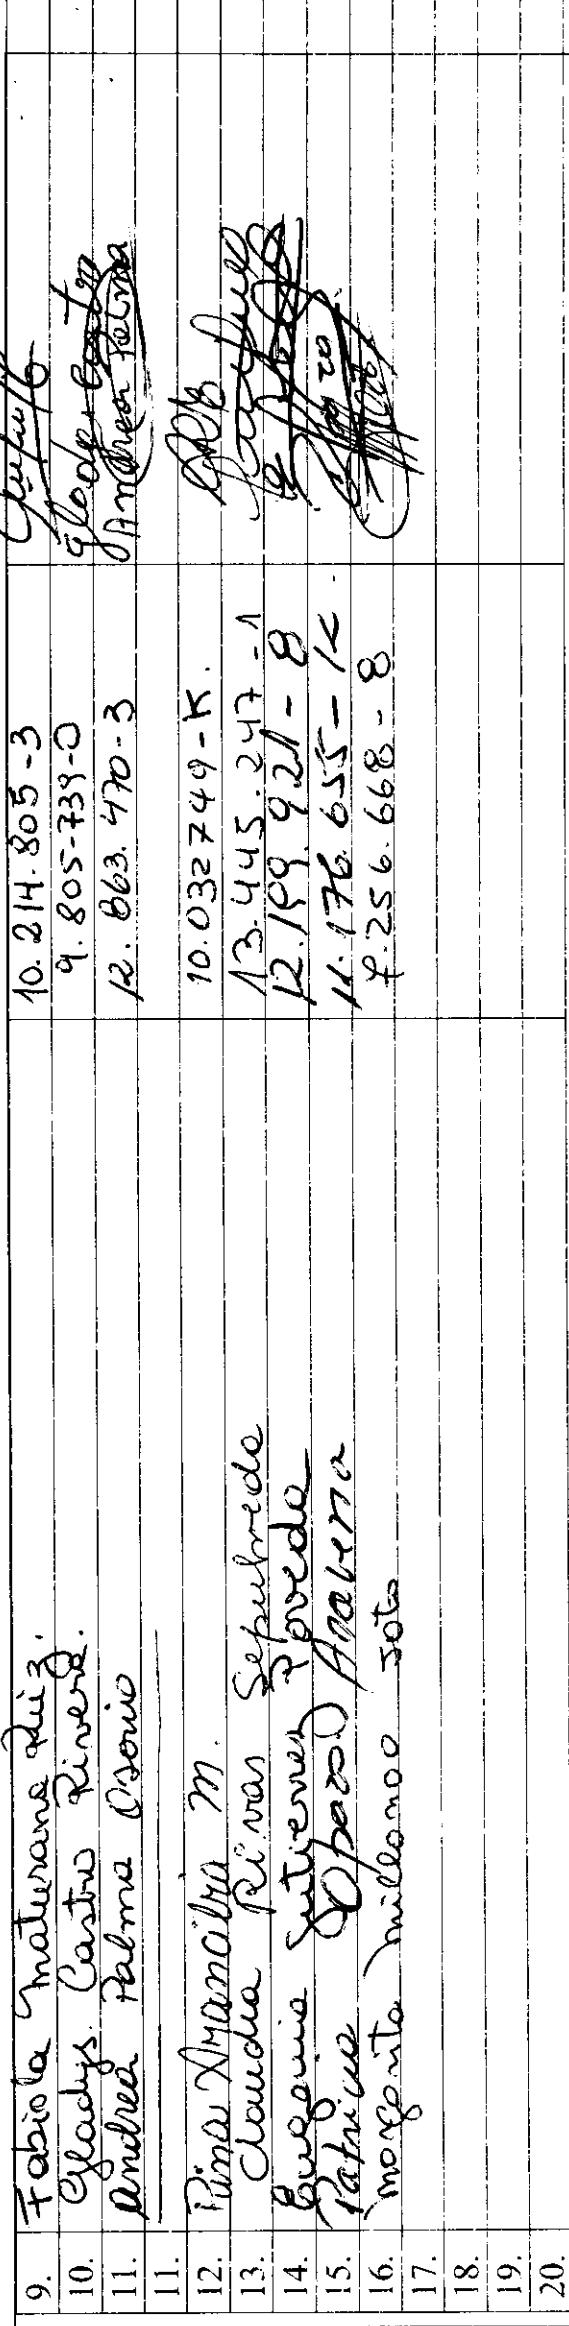 9. Fabiola Maturana Ruiz. 10.214.805-3
10. Gladys. Castro Rivera. 9.805-739-0 Gladys Castro
11. Andrea Palma Osorio 12.863.470-3 Andrea Palma
11.
12. Pina Arancibia M. 10.032749-K.
13. Claudia Rivas Sepulveda 13.445.247-1
14. Eugenia Gutierrez Poveda 12.199.921-8
15. Patricia Opazo Aravena 11.176.655-K.
16. Margarita Millanao Soto 7.256.668-8
17.
18.
19.
20.